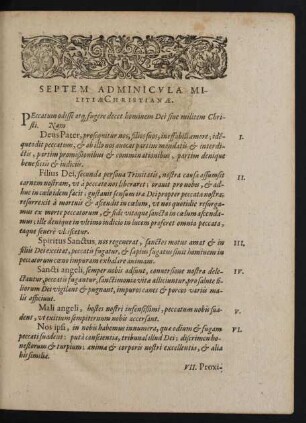 SEPTEM ADMINICVLA MI-
LITIÆ CHRISTIANÆ.
PEccatum odisse atq; fugere decet hominem Dei siue militem Chri-
sti. Nam
Deus Pater, prosequitur nos, filios suos, ineffabili amore, idé-
que odit peccatum, & ab illo nos auocat partim mandatis & interdi-
ctis, partim promissionibus & comminationibus, partim denique
beneficiis & iudiciis.
I.
Filius Dei, secunda persona Trinitatis, nostra causa assumsit
carnem nostram, vt à peccato nos liberaret: orauit pro nobis, & ad-
huc in cælis idem facit: gustauit sensum iræ Dei propter peccata nostra:
resurrexit à mortuis & ascendit in cælum, vt nos quotidie resurga-
mus ex morte peccatorum, & fide vitaque sancta in cælum ascenda-
mus: ille denique in vltimo iudicio in lucem proferet omnia peccata,
eaque seuerè vlciscetur.
II.
Spiritus Sanctus, nos regenerat, sanctos motus amat & in
filiis Dei excitat, peccatis fugatur, & saepius fugatus sinit hominem in
peccatorum cœno impuram exhalare animam.
III.
Sancti angeli, semper nobis adsunt, conuersione nostra dele-
ctantur, peccatis fugantur, sanctimonia vitæ alliciuntur, pro salute fi-
liorum Dei vigilant & pugnant, impuros canes & porcos variis ma-
lis afficiunt.
IV.
Mali angeli, hostes nostri infensissimi, peccatum nobis sua-
dent, vt exitium sempiternum nobis accersant.
V.
Nos ipsi, in nobis habemus innumera, quæ odium & fugam
peccati suadent: puta conscientia, tribunal illud Dei: discrimen ho-
nestorum & turpium: animæ & corporis nostri excellentia, & alia
his similia.
VI.
VII. Proxi-